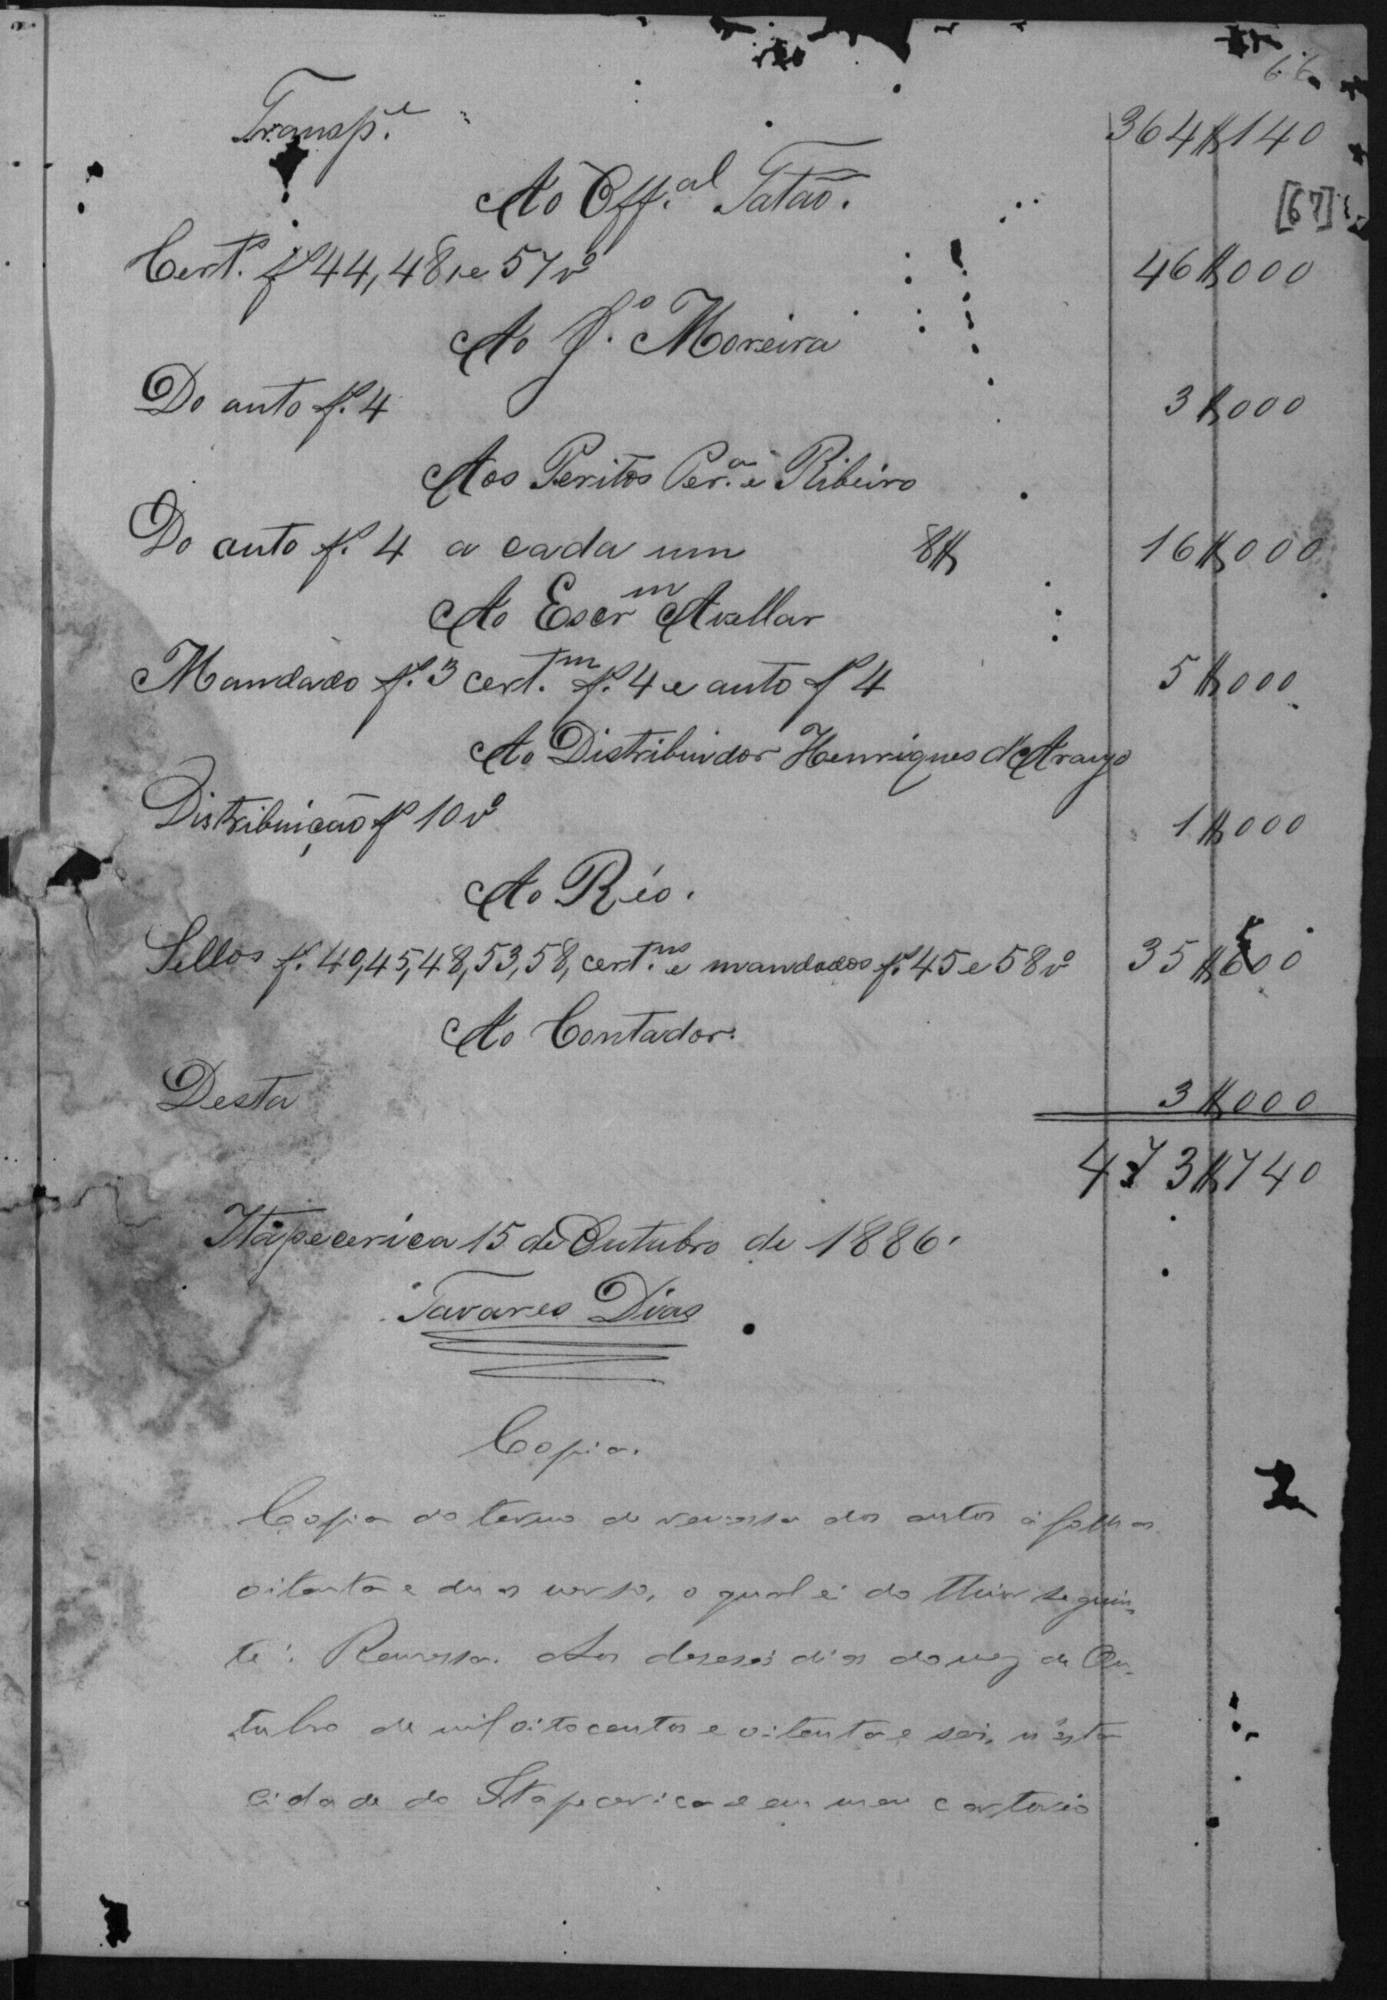 66
Transp.e 364$140
Ao Off.al Tatão.
[67]
Cert.º fº 44, 48, e 57 vº 46$000
Ao J.º Moreira
Do auto fº. 4 3$000
Aos Peritos Per.ª e Ribeiro
Do auto fº. 4 a cada um 8$ 16$000
Ao Escr.m Avellar
Mandado fº. 3 cert.m fº. 4 e auto fº 4 5$000
Ao Distribuidor Henriques d'Araujo
Distribuição fº 10 vº 1$000
Ao Réo.
Sellos fº. 40, 45, 48, 53, 58, cert.ns e mandados fº. 45 e 58 vº 35$600
Ao Contador.
Desta 3$000
473$740
Itapecerica 15 de Outubro de 1886.
Tavares Dias
Copia.
Copia do termo de remessa dos autos á folhas
oitenta e duas verso, o qual é do theor seguin-
te: Remessa. Aos deseseis dias do mez de Ou-
tubro de mil oitocentos e oitenta e seis, n'esta
cidade de Itapecerica e em meu cartorio